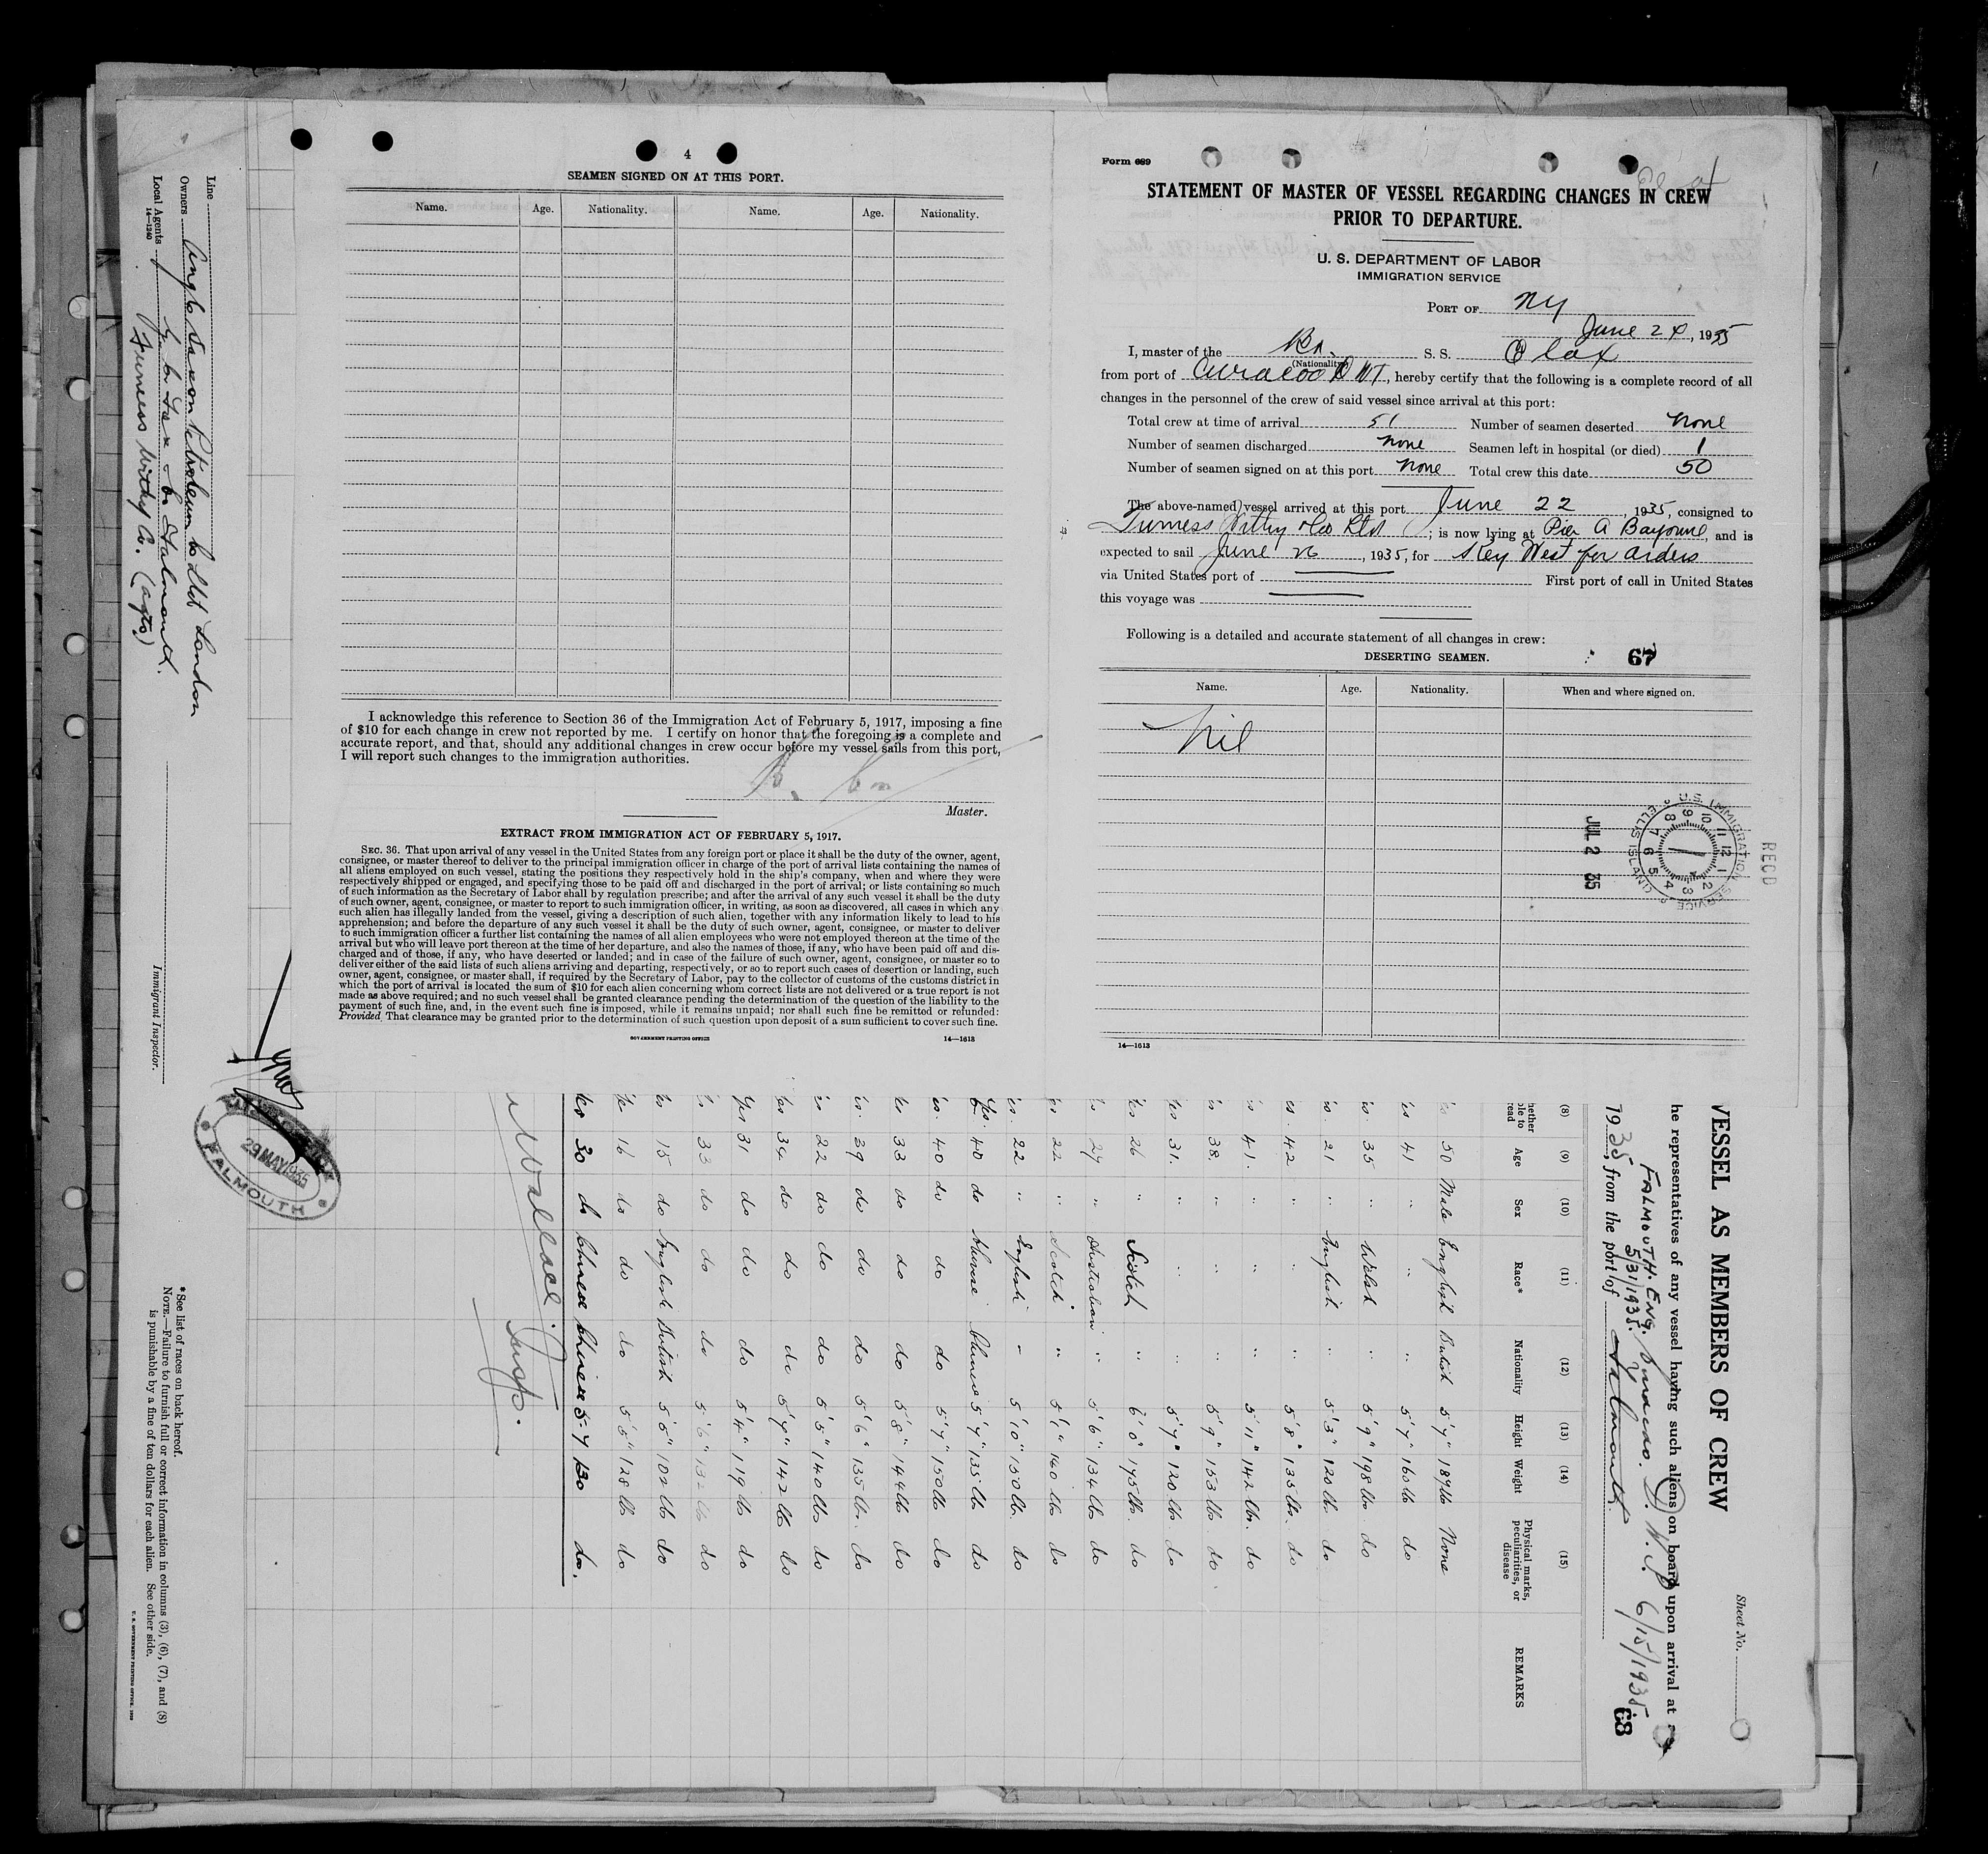 4
SEAMEN SIGNED ON AT THIS PORT.
Name. Age. Nationality. Name. Age. Nationality.
I acknowledge this reference to Section 36 of the Immigration Act of February 5, 1917, imposing a fine
of $10 for each change in crew not reported by me. I certify on honor that the foregoing is a complete and
accurate report, and that, should any additional changes in crew occur before my vessel sails from this port,
I will report such changes to the immigration authorities.
Master.
EXTRACT FROM IMMIGRATION ACT OF FEBRUARY 5, 1917.
SEC. 36. That upon arrival of any vessel in the United States from any foreign port or place it shall be the duty of the owner, agent,
consignee, or master thereof to deliver to the principal immigration officer in charge of the port of arrival lists containing the names of
all aliens employed on such vessel, stating the positions they respectively hold in the ship's company, when and where they were
respectively shipped or engaged, and specifying those to be paid off and discharged in the port of arrival; or lists containing so much
of such information as the Secretary of Labor shall by regulation prescribe; and after the arrival of any such vessel it shall be the duty
of such owner, agent, consignee, or master to report to such immigration officer, in writing, as soon as discovered, all cases in which any
such alien has illegally landed from the vessel, giving a description of such alien, together with any information likely to lead to his
apprehension; and before the departure of any such vessel it shall be the duty of such owner, agent, consignee, or master to deliver
to such immigration officer a further list containing the names of all alien employees who were not employed thereon at the time of the
arrival but who will leave port thereon at the time of her departure, and also the names of those, if any, who have been paid off and dis-
charged and of those, if any, who have deserted or landed; and in case of the failure of such owner, agent, consignee, or master so to
deliver either of the said lists of such aliens arriving and departing, respectively, or so to report such cases of desertion or landing, such
owner, agent, consignee, or master shall, if required by the Secretary of Labor, pay to the collector of customs of the customs district in
which the port of arrival is located the sum of $10 for each alien concerning whom correct lists are not delivered or a true report is not
made as above required; and no such vessel shall be granted clearance pending the determination of the question of the liability to the
payment of such fine, and, in the event such fine is imposed, while it remains unpaid; nor shall such fine be remitted or refunded:
Provided That clearance may be granted prior to the determination of such question upon deposit of a sum sufficient to cover such fine.
GOVERNMENT PRINTING OFFICE 14—1613
Form 689
STATEMENT OF MASTER OF VESSEL REGARDING CHANGES IN CREW
PRIOR TO DEPARTURE.
U. S. DEPARTMENT OF LABOR
IMMIGRATION SERVICE
PORT OF NY
June 24, 1935
I, master of the Br. S. S. Olax
(Nationality)
from port of Curacoo D W I, hereby certify that the following is a complete record of all
changes in the personnel of the crew of said vessel since arrival at this port:
Total crew at time of arrival 51 Number of seamen deserted none
Number of seamen discharged none Seamen left in hospital (or died) 1
Number of seamen signed on at this port none Total crew this date 50
The above-named vessel arrived at this port June 22, 1935, consigned to
Furness Withy & Co Ltd; is now lying at Pier A Bayonne, and is
expected to sail June 26, 1935, for Key West for orders
via United States port of First port of call in United States
this voyage was
Following is a detailed and accurate statement of all changes in crew:
DESERTING SEAMEN. 67
Name. Age. Nationality. When and where signed on.
Nil
RECD
U.S. IMMIGRATION SERVICE ELLIS ISLAND
JUL 2 35
14—1613
VESSEL AS MEMBERS OF CREW
Sheet No.
he representatives of any vessel having such aliens on board upon arrival at
FALMOUTH. ENG. Curacao. D.W.I. 6/15/1935
5/31/1935
1935, from the port of Falmouth. 68
(8) (9) (10) (11) (12) (13) (14) (15)
Age Sex Race* Nationality Height Weight Physical marks, peculiarities, or disease REMARKS
50 Male English British 5'7" 189lb None
41 " " " 5'7" 160lb do
35 " Welsh " 5'9" 198lb. do
21 " English " 5'3" 120lb. do
42 " " " 5'8" 135lb. do
41. " " " 5'11" 142lb. do
38. " " " 5'9" 153lb. do
31. " " " 5'7" 120lb do
26 " Scotch " 6'0" 195lb. do
29 " Australian " 5'6" 134lb do
22 " Scotch " 160lb do
22 " English - 5'10" 150lb. do
Yes. 40 do Chinese Chinese 5'7" 135lb do
40 do do do 5'7" 150lb do
33 do do do 5'8" 144lb do
39 do do do 5'6" 135lb. do
22 do do do 5'5" 140lbs do
34 do do do 5'7" 142lb do
Yes 31 do do do 5'4" 119lb do
33 do do do 5'6" 132lb do
15 do English British 5'5" 102lb do
16 do do do 5'5" 128lb do
Yes 30 do Chinese Chinese 5-7 130 do.
Wallace. Insp.
29 MAY 1935
FALMOUTH
Line
Owners Anglo Saxon Petroleum Co Ltd London
Local Agents G. C. Fox & Co. Falmouth.
14—1240
Furness Withy Co. (agts)
Immigrant Inspector.
*See list of races on back hereof.
NOTE.—Failure to furnish full or correct information in columns (3), (6), (7), and (8)
is punishable by a fine of ten dollars for each alien. See other side.